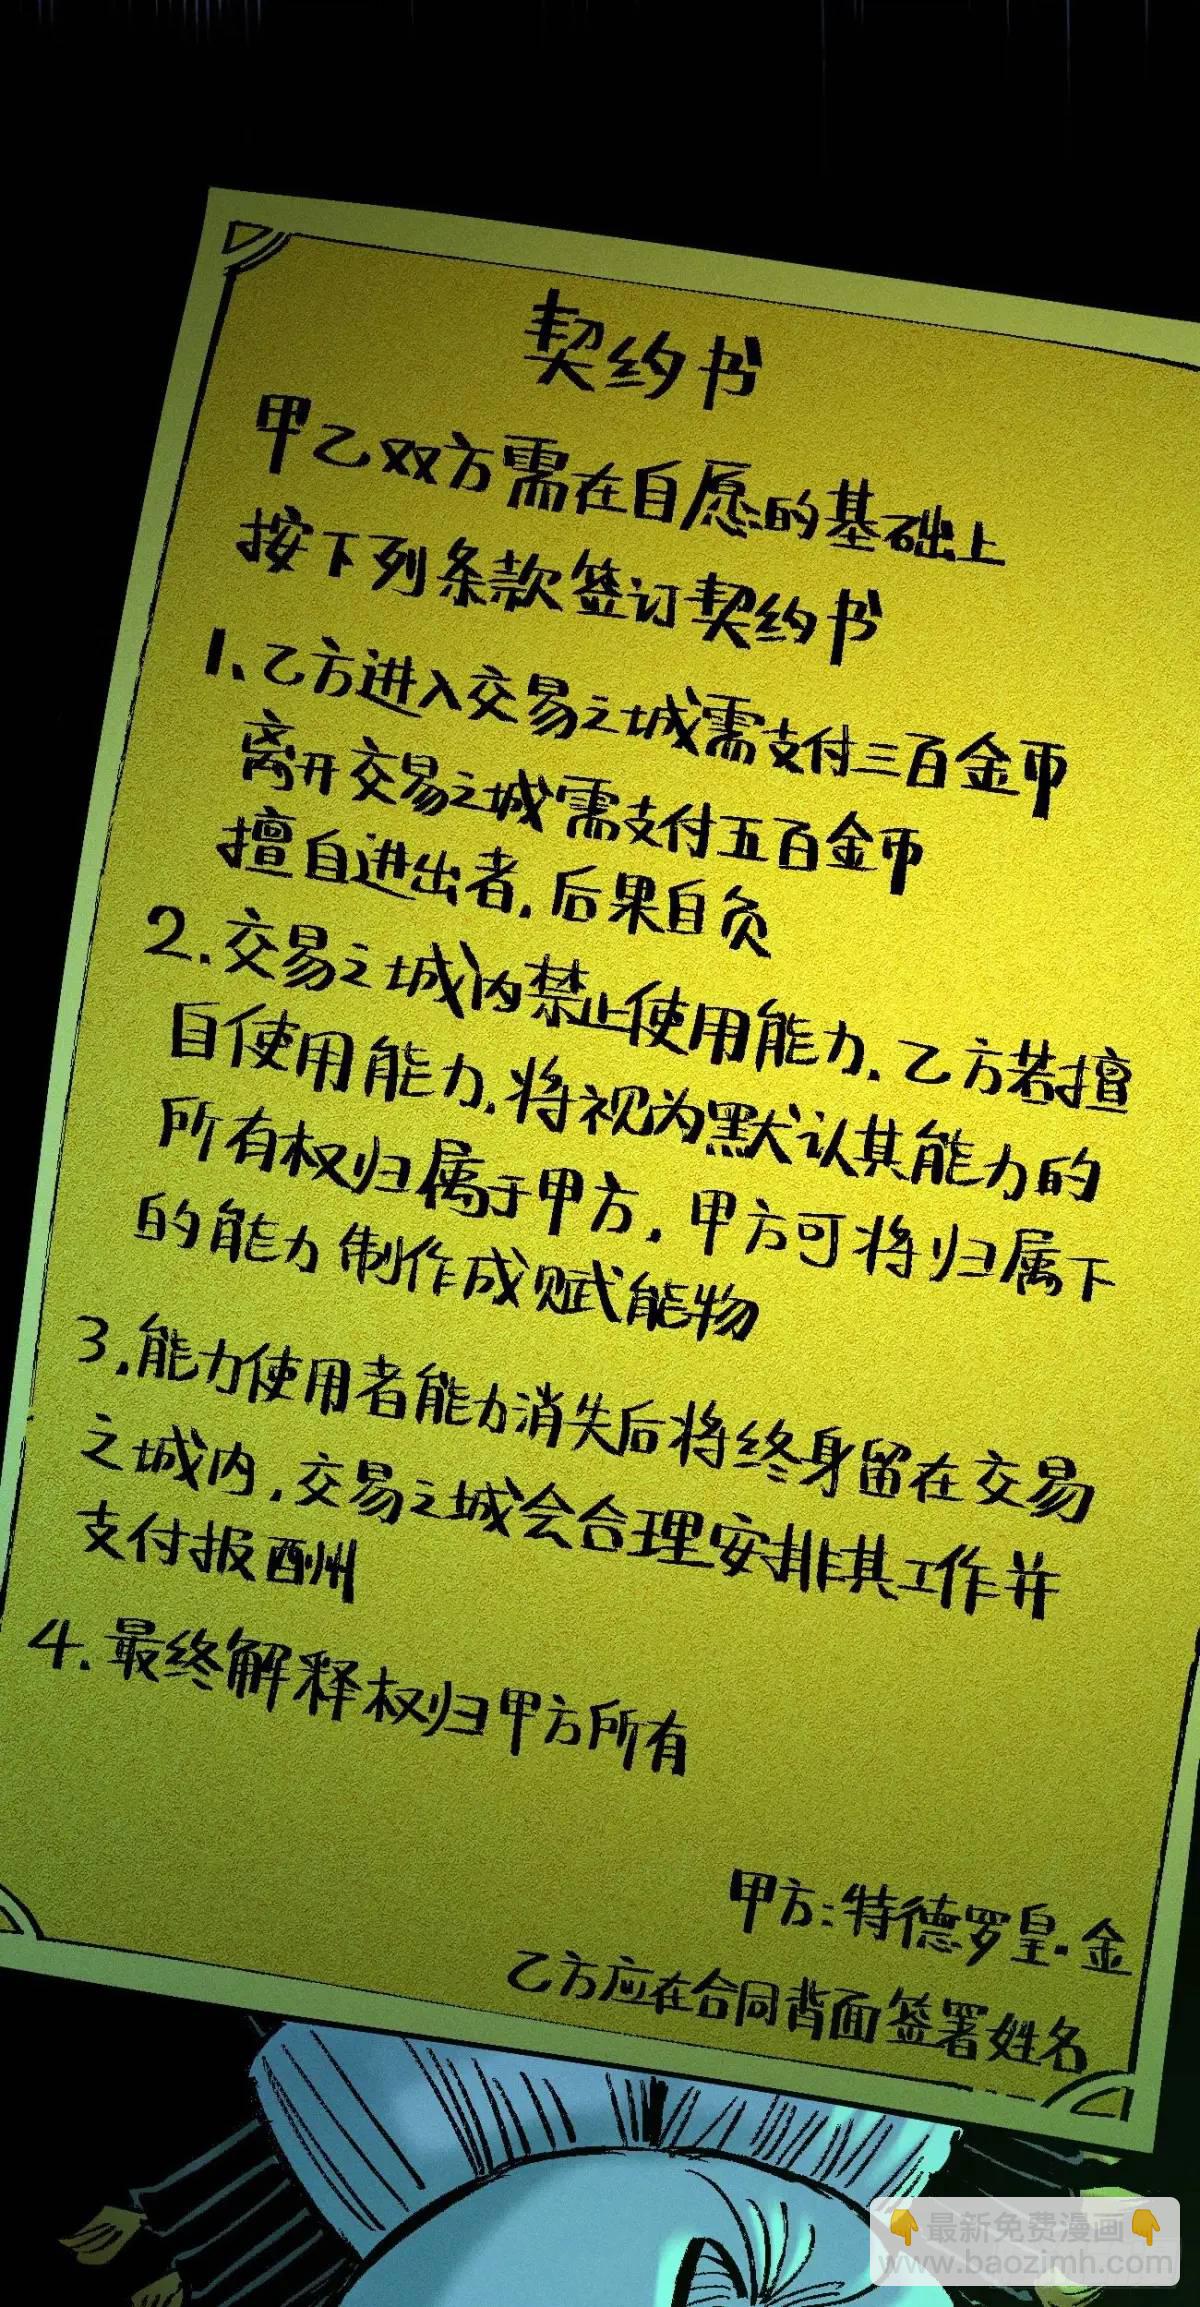 契约书
甲乙双方需在自愿的基础上
按下列条款签订契约书
1、乙方进入交易之城需支付三百金币
离开交易之城需支付五百金币
擅自进出者，后果自负
2.交易之城内禁止使用能力.乙方若擅
自使用能力.将视为默认其能力的
所有权归属于甲方，甲方可将归属下
的能力制作成赋能物
3.能力使用者能力消失后将终身留在交易
之城内.交易之城会合理安排其工作并
支付报酬
4.最终解释权归甲方所有
甲方:特德罗皇.金
乙方应在合同背面签署姓名
👇最新免费漫画👇
www.baozimh.com